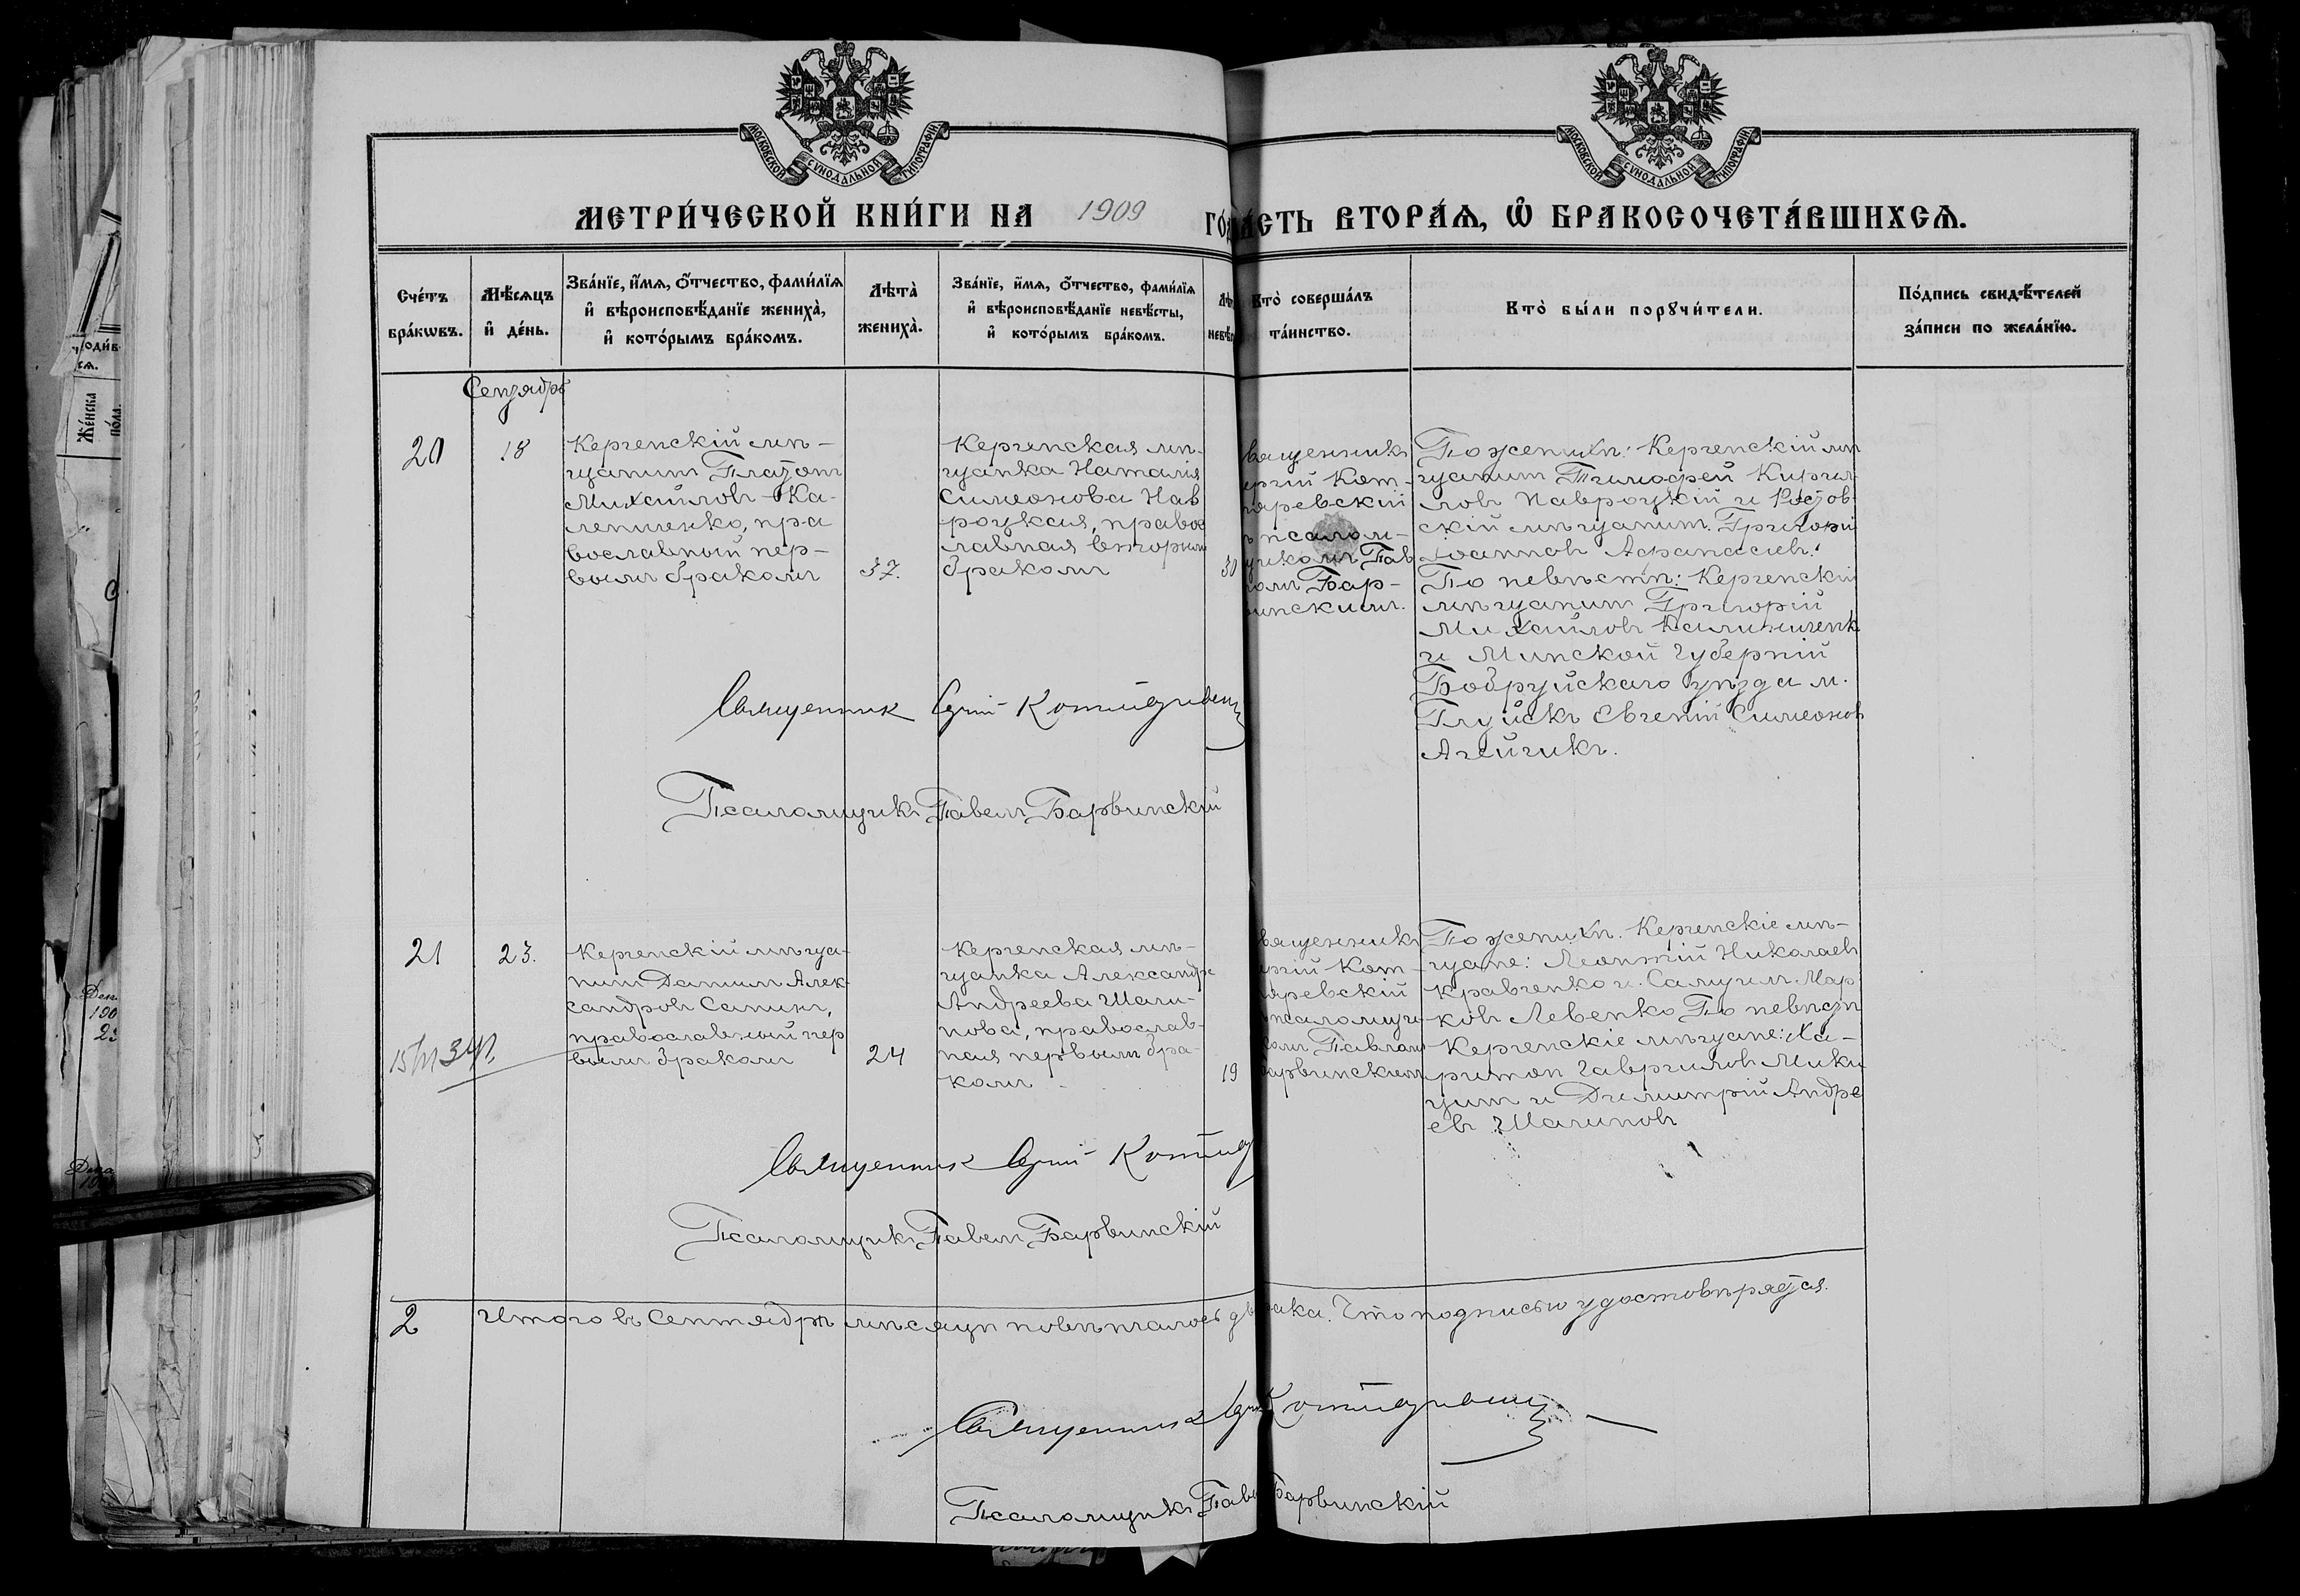 МОСКОВСКОЙ СѴНОДАЛЬНОЙ ТИПОГРАФІИ.
МОСКОВСКОЙ СѴНОДАЛЬНОЙ ТИПОГРАФІИ.
МЕТРИ́ЧЕСКОЙ КНИ́ГИ НА 1909 ГО́
А́СТЬ ВТОРА́Ѧ, Ѽ БРАКОСОЧЕТА́ВШИХСѦ.
Сче́тъ
бра́кѡвъ.
Мѣ́сѧцъ
и҆ де́нь.
Зва́нїе, и҆́мѧ, ѻ҆́тчество, фами́лїѧ
и҆ вѣроисповѣ́данїе жениха̀,
и҆ кото́рымъ бра́комъ.
Лѣта̀
жениха̀.
Зва́нїе, и҆́мѧ, ѻ҆́тчество, фами́лїѧ
и҆ вѣроисповѣ́данїе невѣ́сты,
и҆ кото́рымъ бра́комъ.
Лѣ
невѣ́с
Кто̀ соверша́лъ
та́инство.
Кто̀ бы́ли порꙋчи́тели.
По́дпись свидѣ́телей
за́писи по жела́нїю.
Сентябрь
20
18
Керченскій мѣ-
щанинъ Платонъ
Михайловъ Ка-
лениченко, пра
вославный пер-
вымъ бракомъ
37.
Керченская мѣ-
щанка Наталія
Симеонова Нав
роцкая, правос
лавная вторымъ
бракомъ
30
вященникъ
ергій Кот-
ляревскій
ъ псалом-
щикомъ Пав
ломъ Бар-
винскимъ.
По женихѣ: Керченскій мѣ
щанинъ Тимофей Кирил-
ловъ Навроцкій и Ростов
скій мѣщанинъ Григорій
Іоанновъ Афанасьевъ.
По невѣстѣ: Керченскій
мѣщанинъ Григорій
Михайловъ Калиниченк
и Минской губерній
Бобруйскаго уѣзда м.
Глуйскъ Евгеній Симеонов
Агейчикъ.
Священникъ Сергій Котляревскій
Псаломщикъ Павелъ Барвинскій
21
23.
Керченскій мѣща-
нинъ Даніилъ Алек
сандровъ Санинъ,
православный пер
вымъ бракомъ
24
Керченская мѣ-
щанка Александра
Андреева Шали-
нова, православ-
ная первымъ бра-
комъ
19
вященникъ
ергій Кот-
ляревскій
псаломщи-
комъ Павломъ
Барвинскимъ
По женихѣ. Керченскіе мѣ-
щане: Леонтій Николаевъ
Кравченко и Самуилъ Мар
ковъ Левенко По невѣстѣ
Керченскіе мѣщане: Ха-
ритон Гавриловъ Мики
тинъ и Димитрій Андре
евъ Шалиновъ
Священникъ Сергій Котляр
Псаломщикъ Павелъ Барвинскій
2
Итого въ Сентябрѣ мѣсяцѣ повѣнчалось дв рака. Что подписью удостовѣряется.
Священникъ Сергій Котляревскій
Псаломщикъ Паве Барвинскій